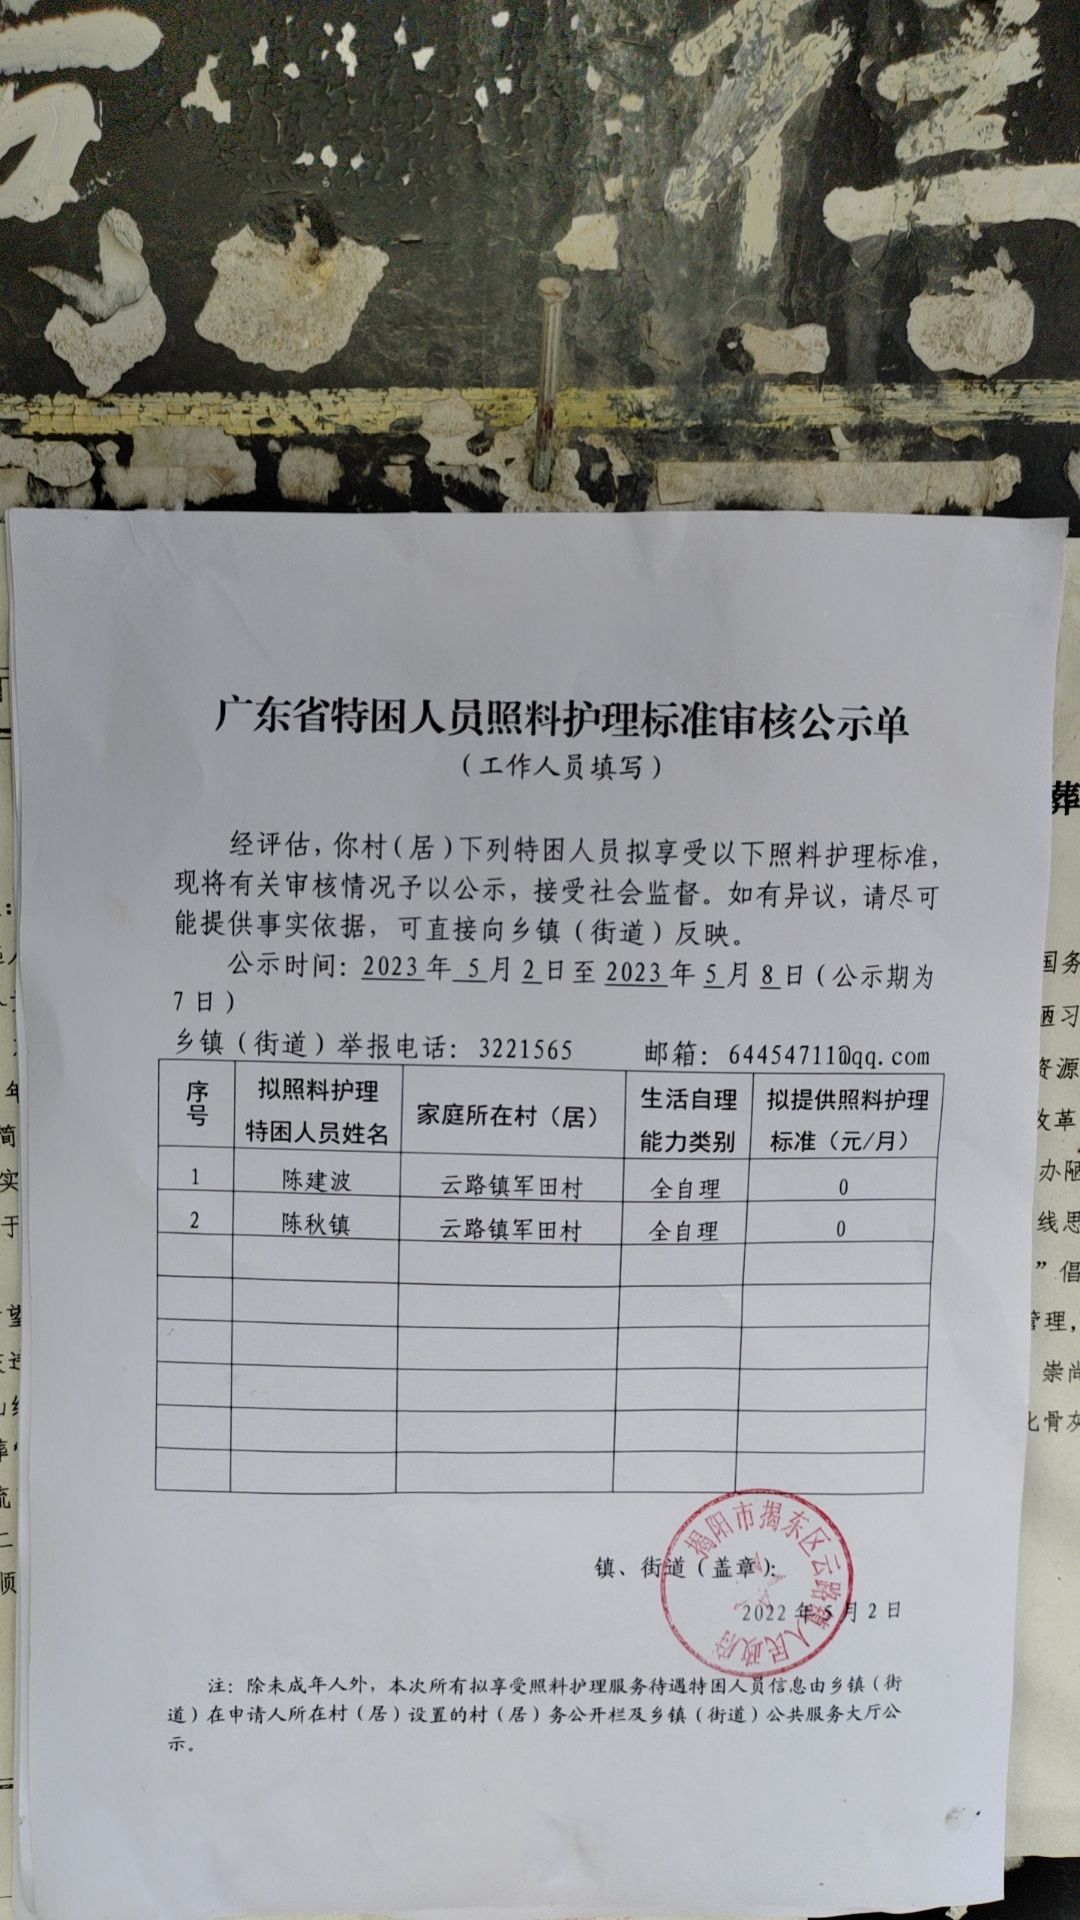 广东省特困人员照料护理标准审核公示单
（工作人员填写）
经评估，你村（居）下列特困人员拟享受以下照料护理标准，
现将有关审核情况予以公示，接受社会监督。如有异议，请尽可
能提供事实依据，可直接向乡镇（街道）反映。
公示时间：2023年 5月2日至2023年5月8日（公示期为
7日）
乡镇（街道）举报电话：3221565 邮箱：64454711@qq.com
序号 拟照料护理特困人员姓名 家庭所在村（居） 生活自理能力类别 拟提供照料护理标准（元/月）
1 陈建波 云路镇军田村 全自理 0
2 陈秋镇 云路镇军田村 全自理 0
镇、街道（盖章）：
2022年5月2日
揭阳市揭东区云路镇人民政府
注：除未成年人外，本次所有拟享受照料护理服务待遇特困人员信息由乡镇（街
道）在申请人所在村（居）设置的村（居）务公开栏及乡镇（街道）公共服务大厅公
示。
葬
国务
陋习
资源
改革
办陋
线思
”倡
管理，
崇尚
化骨灰